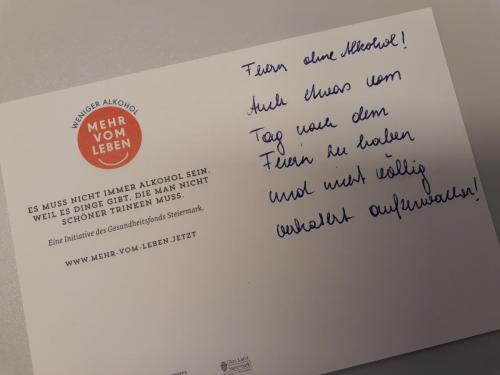 WENIGER ALKOHOL
MEHR
VOM
LEBEN
ES MUSS NICHT IMMER ALKOHOL SEIN.
WEIL ES DINGE GIBT, DIE MAN NICHT
SCHÖNER TRINKEN MUSS.
Eine Initiative des Gesundheitsfonds Steiermark.
WWW.MEHR-VOM-LEBEN.JETZT
Feiern ohne Alkohol!
Auch etwas vom
Tag nach dem
Feiern zu haben
und nicht völlig
verkatert aufzuwachen!
Das Land
Steiermark